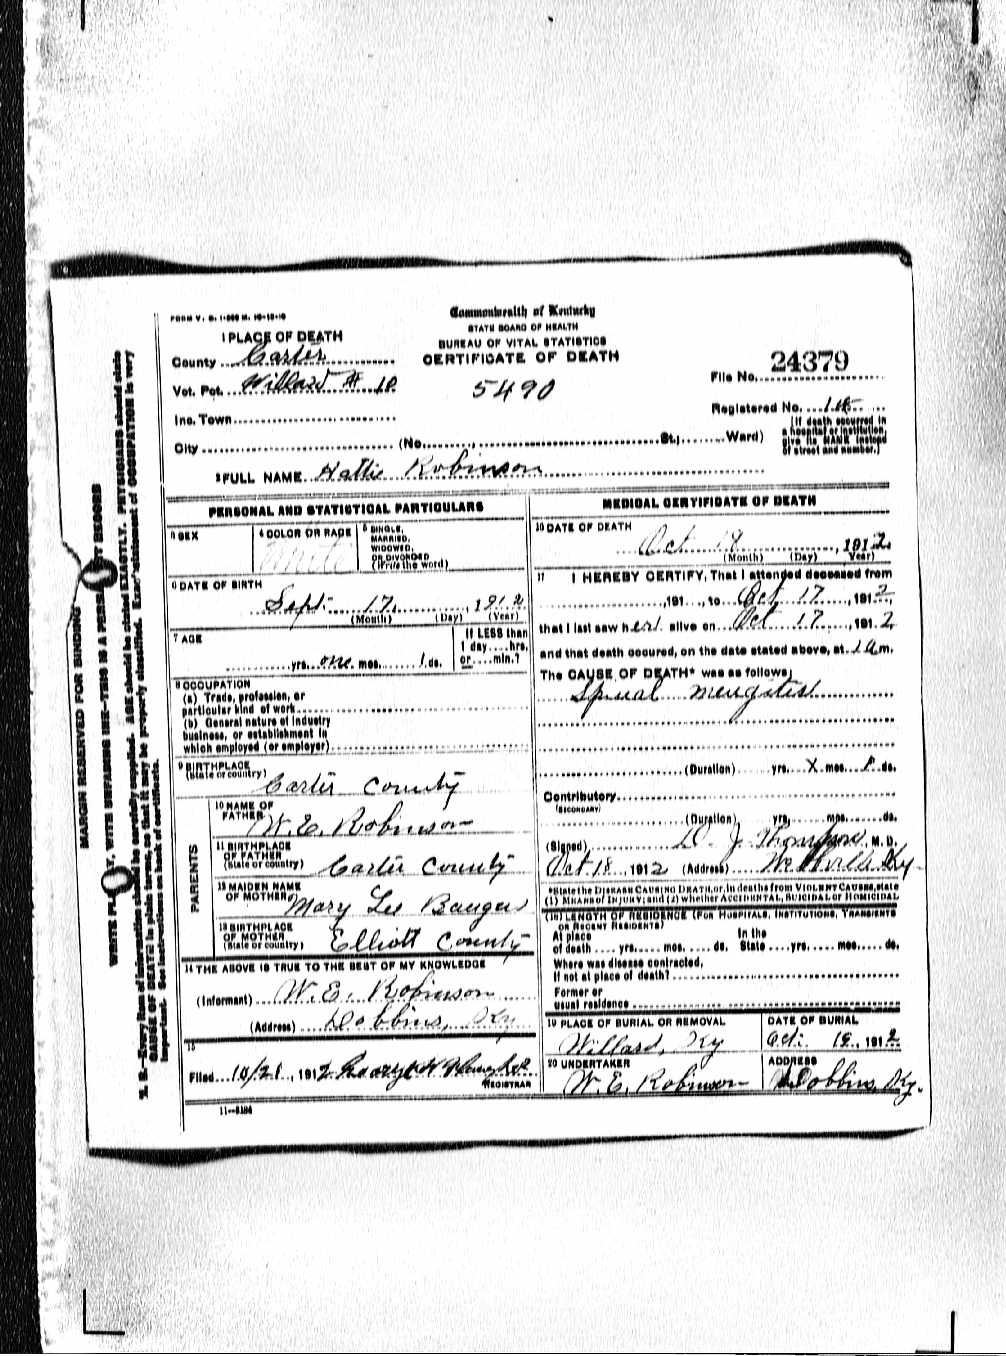 FORM V. S. 1-500 M. 10-12-10
Commonwealth of Kentucky
STATE BOARD OF HEALTH
BUREAU OF VITAL STATISTICS
CERTIFICATE OF DEATH
1 PLACE OF DEATH
County Carter
Vot. Pct. Willard # 10
Inc. Town
City (No. , St.; Ward)
5490
File No. 24379
Registered No.
(If death occurred in
a hospital or institution,
give its NAME instead
of street and number.)
2 FULL NAME Hattie Robinson
PERSONAL AND STATISTICAL PARTICULARS
3 SEX
4 COLOR OR RACE
White
5 SINGLE,
MARRIED,
WIDOWED,
OR DIVORCED
(Write the word)
6 DATE OF BIRTH
Sept. 17, 1912
(Month) (Day) (Year)
7 AGE
yrs. one mos. 1 ds.
If LESS than
1 day....hrs.
or....min.?
8 OCCUPATION
(a) Trade, profession, or
particular kind of work
(b) General nature of industry
business, or establishment in
which employed (or employer)
9 BIRTHPLACE
(State or country)
Carter County
PARENTS
10 NAME OF
FATHER
W. E. Robinson
11 BIRTHPLACE
OF FATHER
(State or country)
Carter County
12 MAIDEN NAME
OF MOTHER
Mary Lee
13 BIRTHPLACE
OF MOTHER
(State or country)
Elliott County
14 THE ABOVE IS TRUE TO THE BEST OF MY KNOWLEDGE
(Informant) W. E. Robinson
(Address) Dobbins, Ky
15
Filed 10/21, 1912
REGISTRAR
11—5184
MEDICAL CERTIFICATE OF DEATH
16 DATE OF DEATH
Oct 18, 1912
(Month) (Day) (Year)
17 I HEREBY CERTIFY, That I attended deceased from
,191 , to Oct 17, 1912,
that I last saw her alive on Oct 17, 1912
and that death occured, on the date stated above, at m.
The CAUSE OF DEATH* was as follows;
Spinal mengites
(Duration) yrs. X mos. ds.
Contributory
(SECONDARY)
(Duration) yrs. mos. ds.
(Signed) D. J. Thompson M. D.
Oct 18, 1912 (Address) Ky.
*State the DISEASE CAUSING DEATH, or, in deaths from VIOLENT CAUSES, state
(1) MEANS OF INJURY; and (2) whether ACCIDENTAL, SUICIDAL or HOMICIDAL
(18) LENGTH OF RESIDENCE (FOR HOSPITALS, INSTITUTIONS, TRANSIENTS
OR RECENT RESIDENTS)
At place In the
of death yrs. mos. ds. State yrs. mos. ds.
Where was disease contracted,
If not at place of death?
Former or
usual residence
19 PLACE OF BURIAL OR REMOVAL
Willard, Ky
DATE OF BURIAL
Oct. 19, 1912
20 UNDERTAKER
W. E. Robinson
ADDRESS
Dobbins, Ky.
MARGIN RESERVED FOR BINDING
WRITE PLAINLY, WITH UNFADING INK—THIS IS A PERMANENT RECORD
N. B.—Every item of information should be carefully supplied. AGE should be stated EXACTLY. PHYSICIANS should state
CAUSE OF DEATH in plain terms, so that it may be properly classified. Exact statement of OCCUPATION is very
important. See instructions on back of certificate.